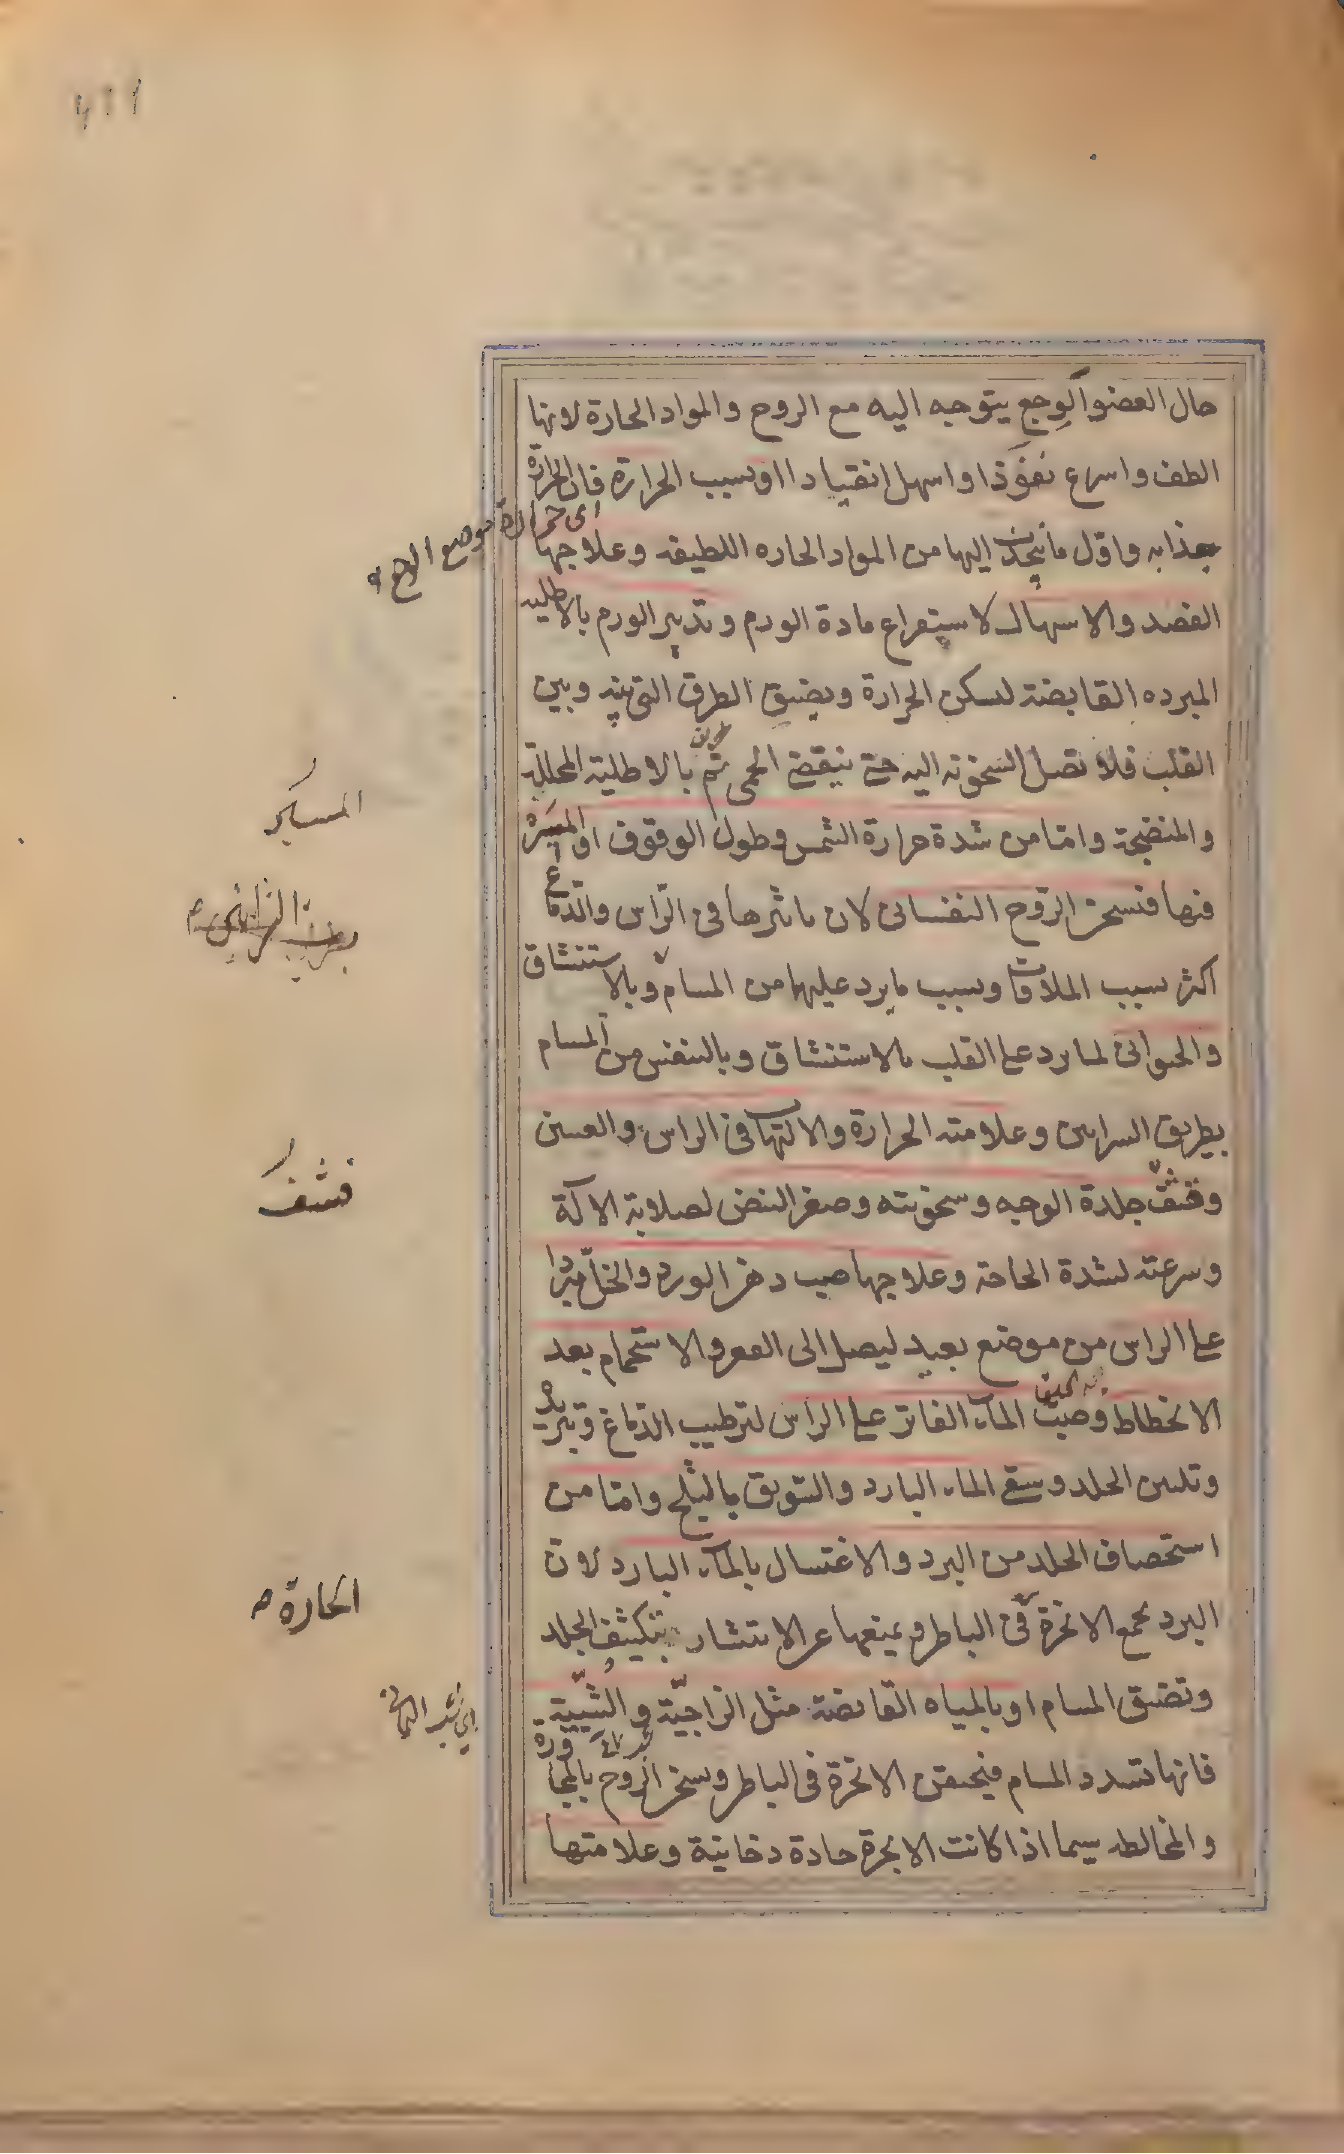 حال العضو الوجع يتوجه اليه مع الروح والمواد الحارة لانها
الطف واسرع نفوذا واسهل انقيادا او بسبب الحرارة فان الحرارة
اى حرارة موضع الوجع
جذابه واول ما ينجذب اليها من المواد الحاره اللطيفه وعلاجها
الفصد والاسهال لاستفراغ مادة الورم وتدبير الورم بالاطليه
المبرده القابضة لسكن الحرارة ويضيق الطرق التي بينه وبين
القلب فلا تصل السخونه اليه حتى ينقضى الحمى ثم بالاطلية المحللة
والمنضجة واما من شدة حرارة الشمس وطول الوقوف او المسير
فيها فتسخن الروح النفسانى لان تاثيرها فى الراس والدماغ
اكثر بسبب الملاقات وبسبب ما يرد عليهما من المسام وبالاستنشاق
والحيوانى لما يرد على القلب بالاستنشاق وبالتنفس من المسام
بطريق الشرايين وعلامته الحرارة والالتهاب فى الراس والعينين
وقشف جلدة الوجه وسخونته وصغر النبض لصلابة الالة
قشف
وسرعته لشدة الحاجة وعلاجها صب دهن الورد والخل مبردا
على الراس من موضع بعيد ليصل الى القعر والاستحمام بعد
الانحطاط وصب الماء الفاتر على الراس لترطيب الدماغ وتبريده
وتليين الجلد وسقى الماء البارد والسويق بالثلج واما من
استحصاف الجلد من البرد والاغتسال بالماء البارد لان
البرد يجمع الابخرة فى الباطن ويمنعها عن الانتشار بتكثيف الجلد
الحارة
وتضيق المسام او بالمياه القابضة مثل الزاجية والشبية
فانها تسدد المسام فيحتقن الابخرة فى الباطن وسخن الروح بالمجاورة
والمخالطه سيما اذا كانت الابخرة حادة دخانية وعلامتها